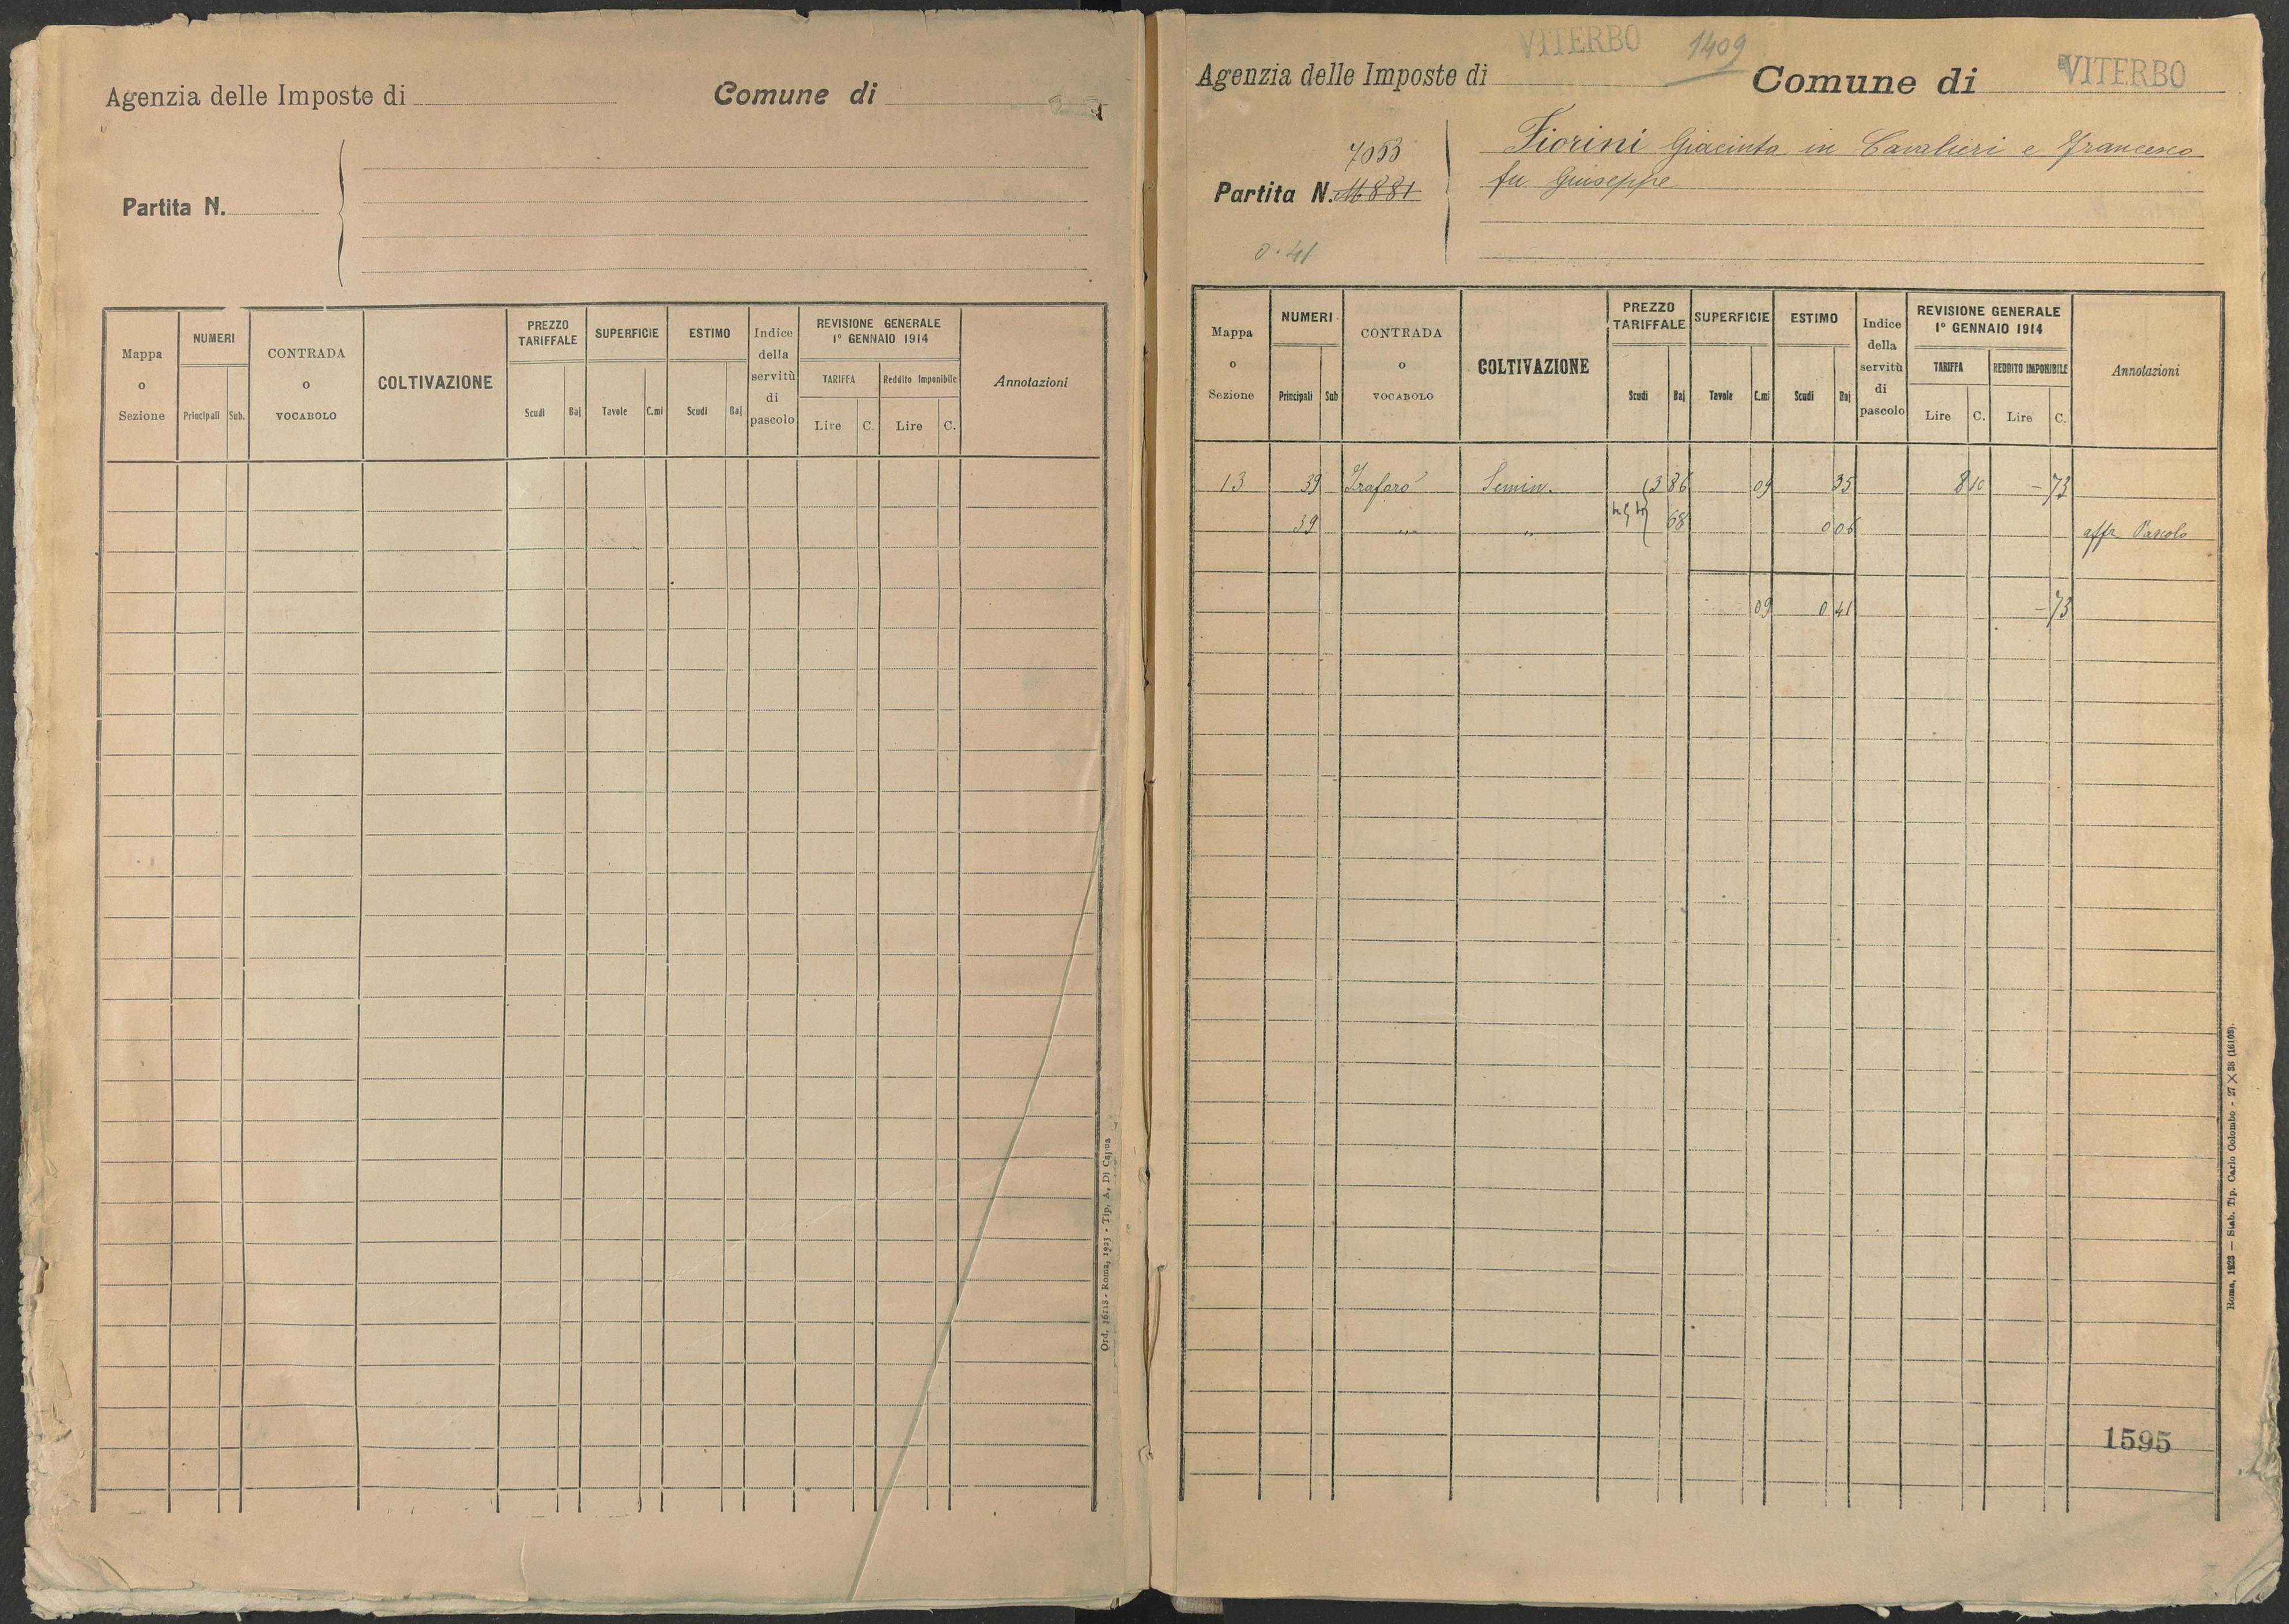 Agenzia delle Imposte di
Comune di
Partita N.
Mappa o Sezione
NUMERI
Principali
Sub.
CONTRADA o VOCABOLO
COLTIVAZIONE
PREZZO TARIFFALE
Scudi
Baj
SUPERFICIE
Tavole
C.mi
ESTIMO
Scudi
Baj
Indice della servitù di pascolo
REVISIONE GENERALE
1° GENNAIO 1914
TARIFFA
Lire
C.
Reddito Imponibile
Lire
C.
Annotazioni
Ord. 16118 - Roma, 1923 - Tip. A. Di Capua
VITERBO
1409
Agenzia delle Imposte di
Comune di VITERBO
7053
Partita N. 11881
0.41
Fiorini Giacinta in Cavalieri e Francesco
fu Giuseppe
Mappa o Sezione
NUMERI
Principali
Sub
CONTRADA o VOCABOLO
COLTIVAZIONE
PREZZO TARIFFALE
Scudi
Baj
SUPERFICIE
Tavole
C.mi
ESTIMO
Scudi
Baj
Indice della servitù di pascolo
REVISIONE GENERALE
1° GENNAIO 1914
TARIFFA
Lire
C.
REDDITO IMPONIBILE
Lire
C.
Annotazioni
13 39 Trafarò Semin. 3 86 09 35 8 10 - 73
39 " " 68 0 06 affr. Pascolo
09 0 41 - 73
1595
Roma, 1923 — Stab. Tip. Carlo Colombo - 27 X 38 (16105).